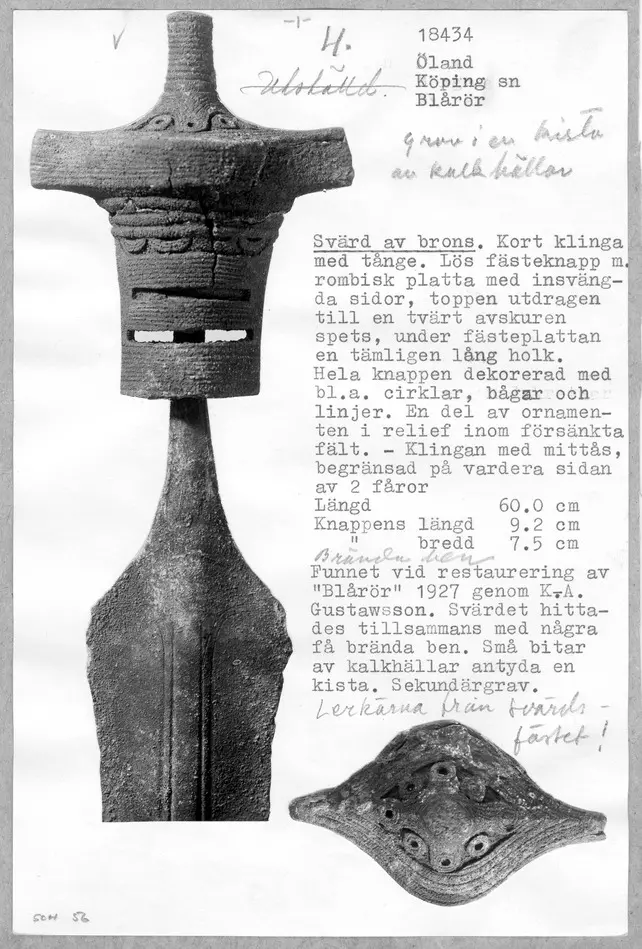 -1-
4.
18434
Utställd.
Öland
Köping sn
Blårör
grav i en kista
av kalkhällar
Svärd av brons. Kort klinga
med tånge. Lös fästeknapp m.
rombisk platta med insväng-
da sidor, toppen utdragen
till en tvärt avskuren
spets, under fästeplattan
en tämligen lång holk.
Hela knappen dekorerad med
bl.a. cirklar, bågar och
linjer. En del av ornamen-
ten i relief inom försänkta
fält. - Klingan med mittås,
begränsad på vardera sidan
av 2 fåror
Längd 60.0 cm
Knappens längd 9.2 cm
" bredd 7.5 cm
Brända ben
Funnet vid restaurering av
"Blårör" 1927 genom K.A.
Gustawsson. Svärdet hitta-
des tillsammans med några
få brända ben. Små bitar
av kalkhällar antyda en
kista. Sekundärgrav.
Lerkärna från svärds-
fästet!
SOH 56